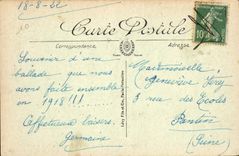 18-8-22
Carte Postale
Correspondance
Adresse
10
Souvenir d'une
ballade que nous
avons faite ensemble
en 1918 !!!
Affectueux baisers
Germaine
Mademoiselle
Geneviève Léry
3 rue des Écoles
Pantin
(Seine)